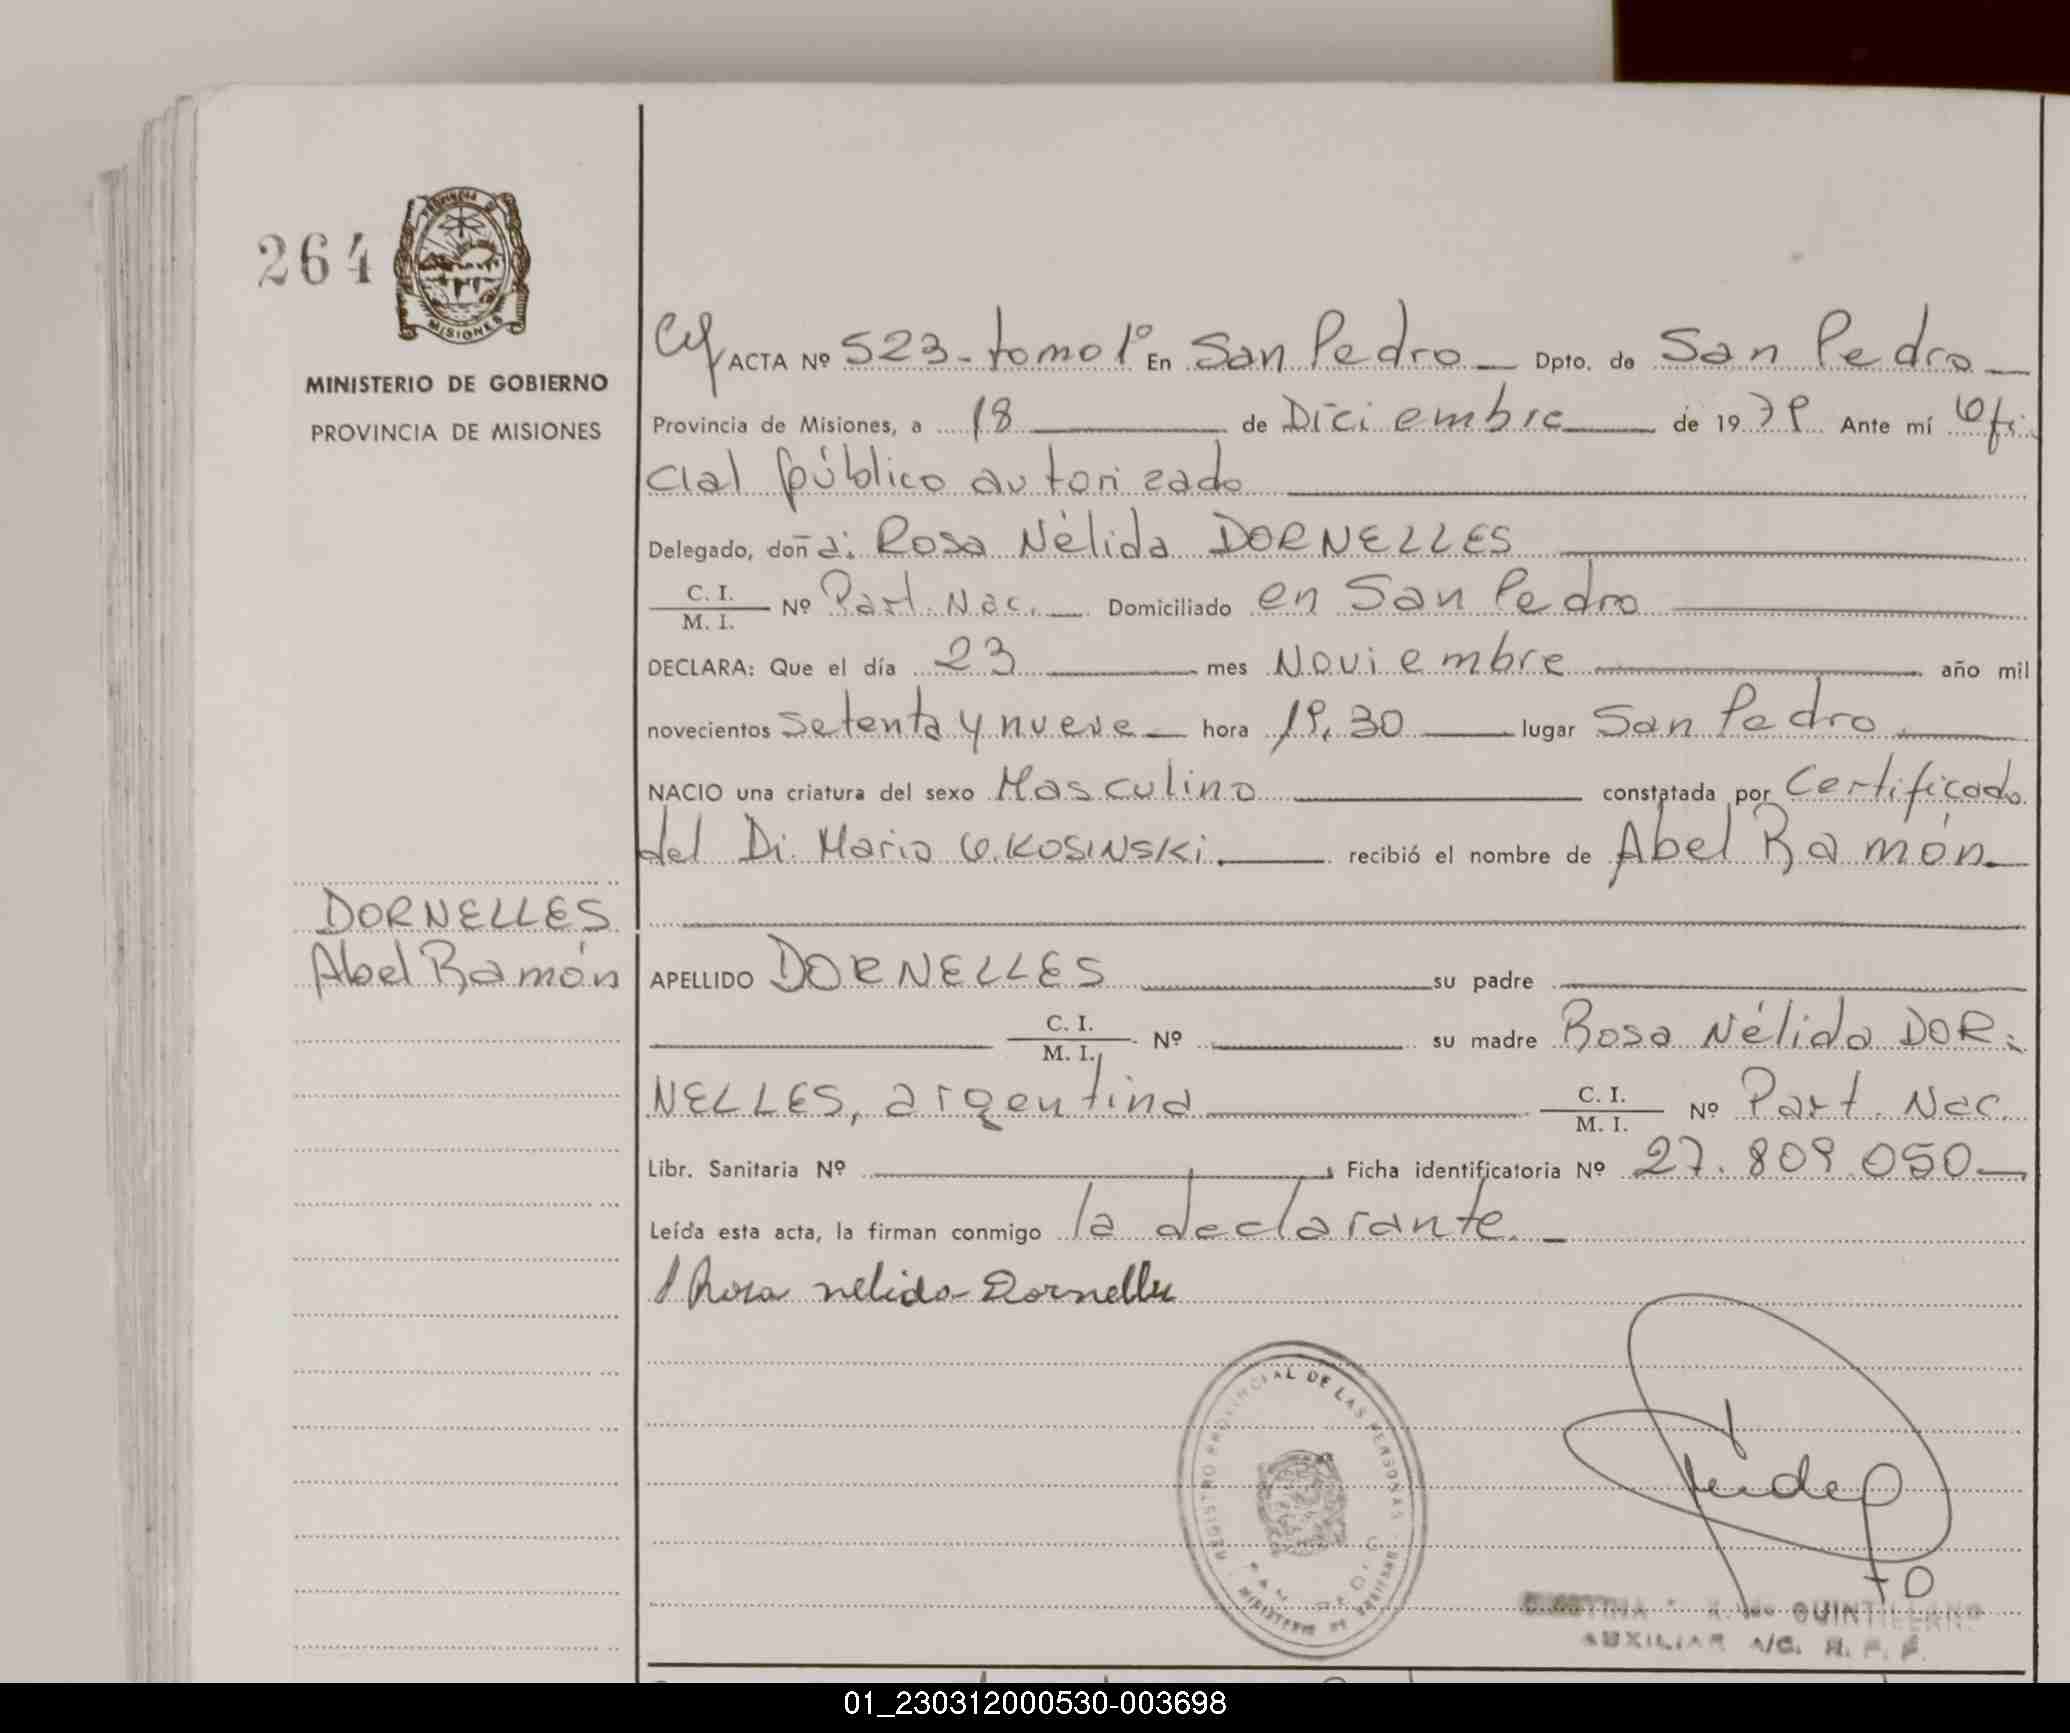 264
PROVINCIA DE
MISIONES
MINISTERIO DE GOBIERNO
PROVINCIA DE MISIONES
DORNELLES
Abel Ramón
ACTA Nº 523 - tomo 1º En San Pedro — Dpto. de San Pedro —
Provincia de Misiones, a 18 — de Diciembre — de 19 79 Ante mí Ofi
cial público autorizado —
Delegado, doña: Rosa Nélida DORNELLES —
C. I. / M. I. Nº Part. Nac. — Domiciliado en San Pedro —
DECLARA: Que el día 23 — mes Noviembre — año mil
novecientos setenta y nueve — hora 19,30 — lugar San Pedro —
NACIO una criatura del sexo Masculino — constatada por Certificado
del Dr. Mario O. KOSINSKi. — recibió el nombre de Abel Ramón —
APELLIDO DORNELLES — su padre —
— C. I. / M. I. Nº — su madre Rosa Nélida DOR-
NELLES, argentina — C. I. / M. I. Nº Part. Nac.
Libr. Sanitaria Nº —, Ficha identificatoria Nº 27.809.050 —
Leída esta acta, la firman conmigo la declarante. —
Rosa nelida Dornelles
REGISTRO PROVINCIAL DE LAS PERSONAS
QUINTILLANO
AUXILIAR A/C. R. P. P.
01_230312000530-003698